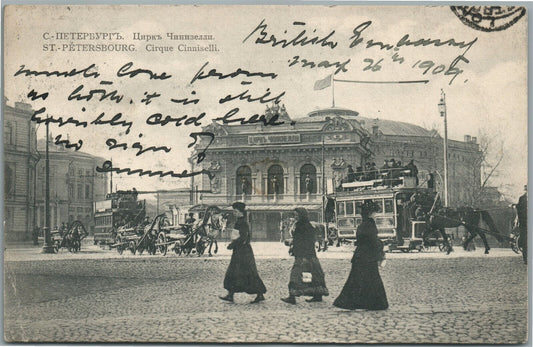 С.-ПЕТЕРБУРГЪ. Циркъ Чинизелли.
ST.-PÉTERSBOURG. Cirque Cinniselli.
British Embassy
May 26th 1909.
Much love from
us both, it is still
horribly cold here
no sign of
summer
ЦИРКЪ